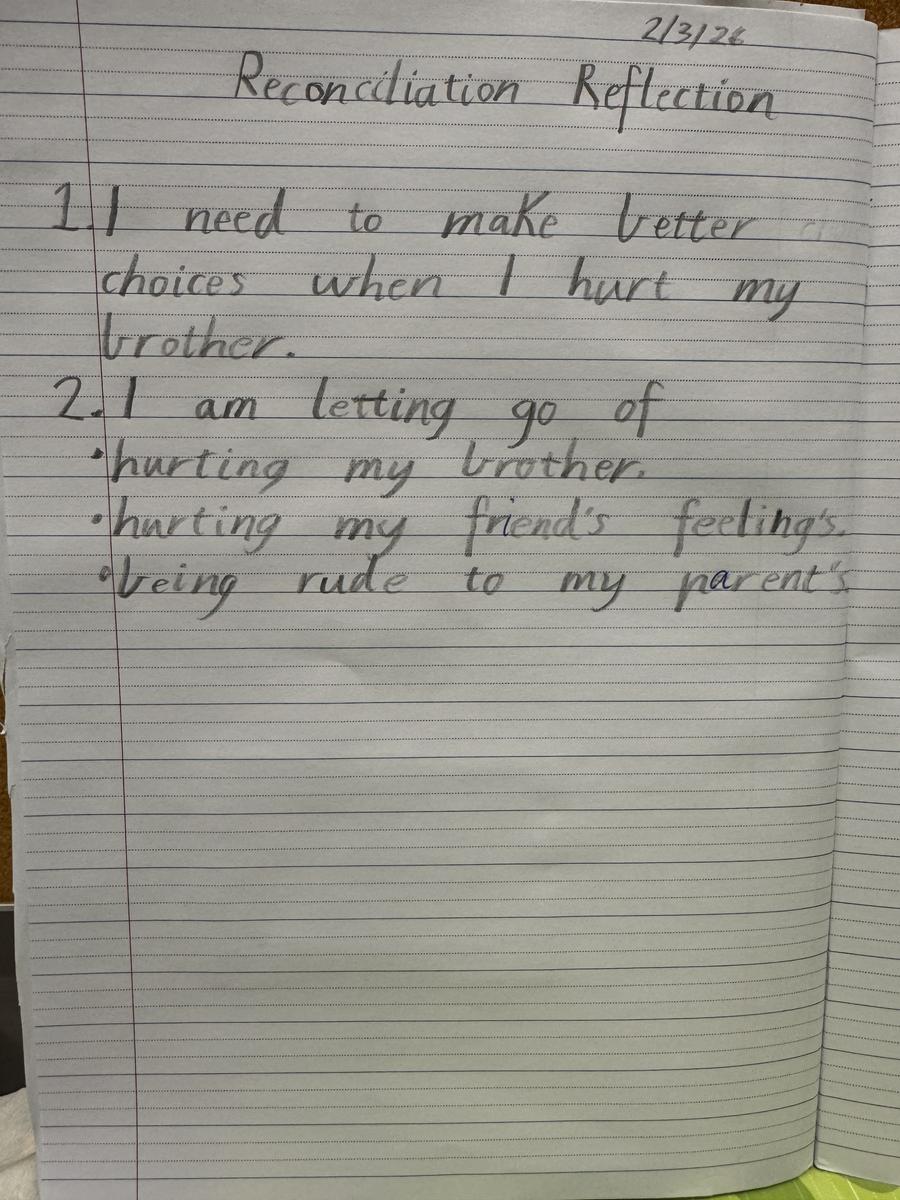 2/3/26
Reconciliation Reflection
1. I need to make better
choices when I hurt my
brother.
2. I am letting go of
• hurting my brother.
• hurting my friend's feeling's.
• being rude to my parent's.